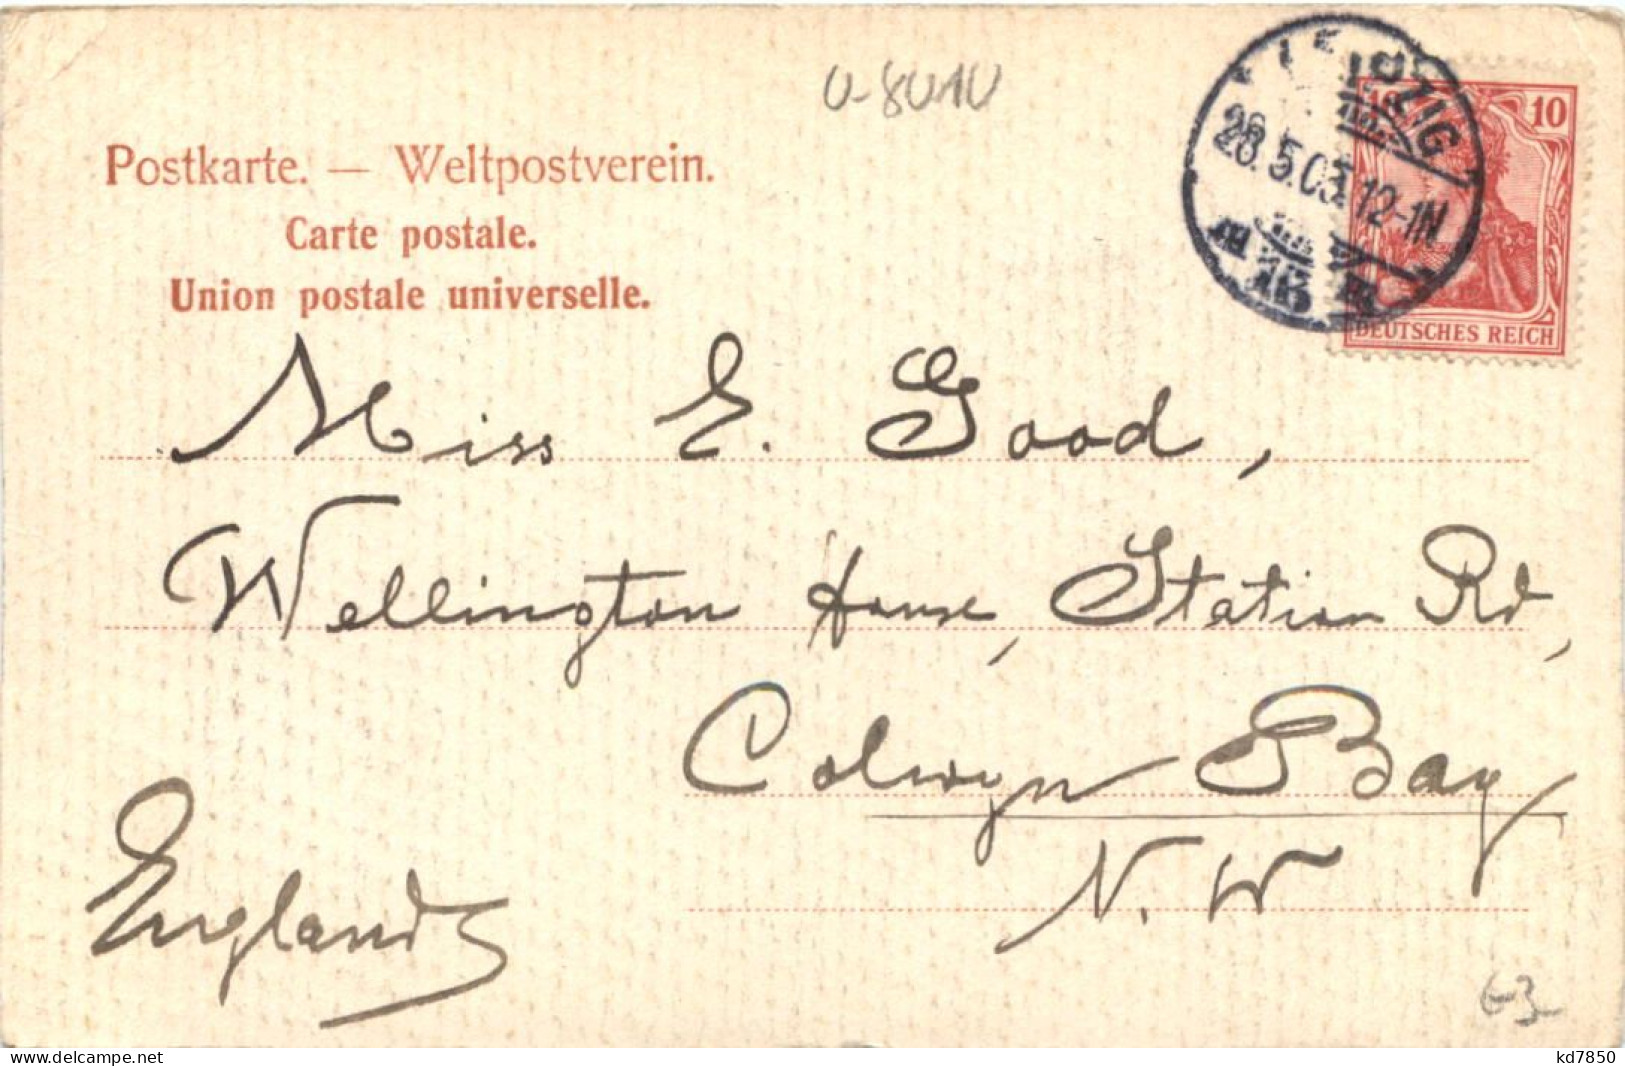 LEIPZIG
5.03. 12-1N
16
10
DEUTSCHES REICH
Postkarte. — Weltpostverein.
Carte postale.
Union postale universelle.
Miss E. Good,
Wellington House, Station Rd,
Colwyn Bay
N. W
England
www.delcampe.net
kd7850